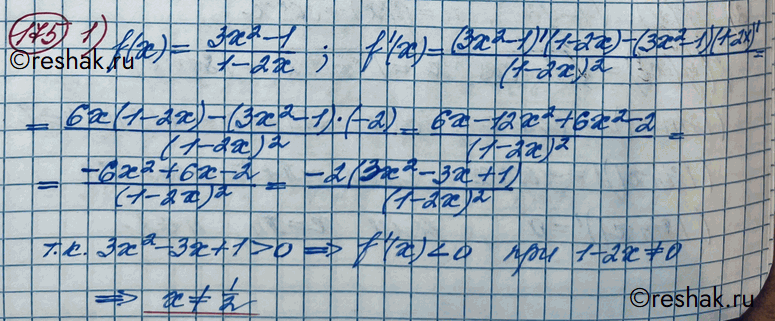 175 1) f(x) = (3x²-1)/(1-2x) ; f'(x) = ((3x²-1)'(1-2x)-(3x²-1)(1-2x)')/(1-2x)² =
= (6x(1-2x)-(3x²-1)·(-2))/(1-2x)² = (6x-12x²+6x²-2)/(1-2x)² =
= (-6x²+6x-2)/(1-2x)² = (-2(3x²-3x+1))/(1-2x)²
т.к. 3x²-3x+1>0 ⇒ f'(x)<0 при 1-2x≠0
⇒ x≠1/2
reshak.ru
reshak.ru